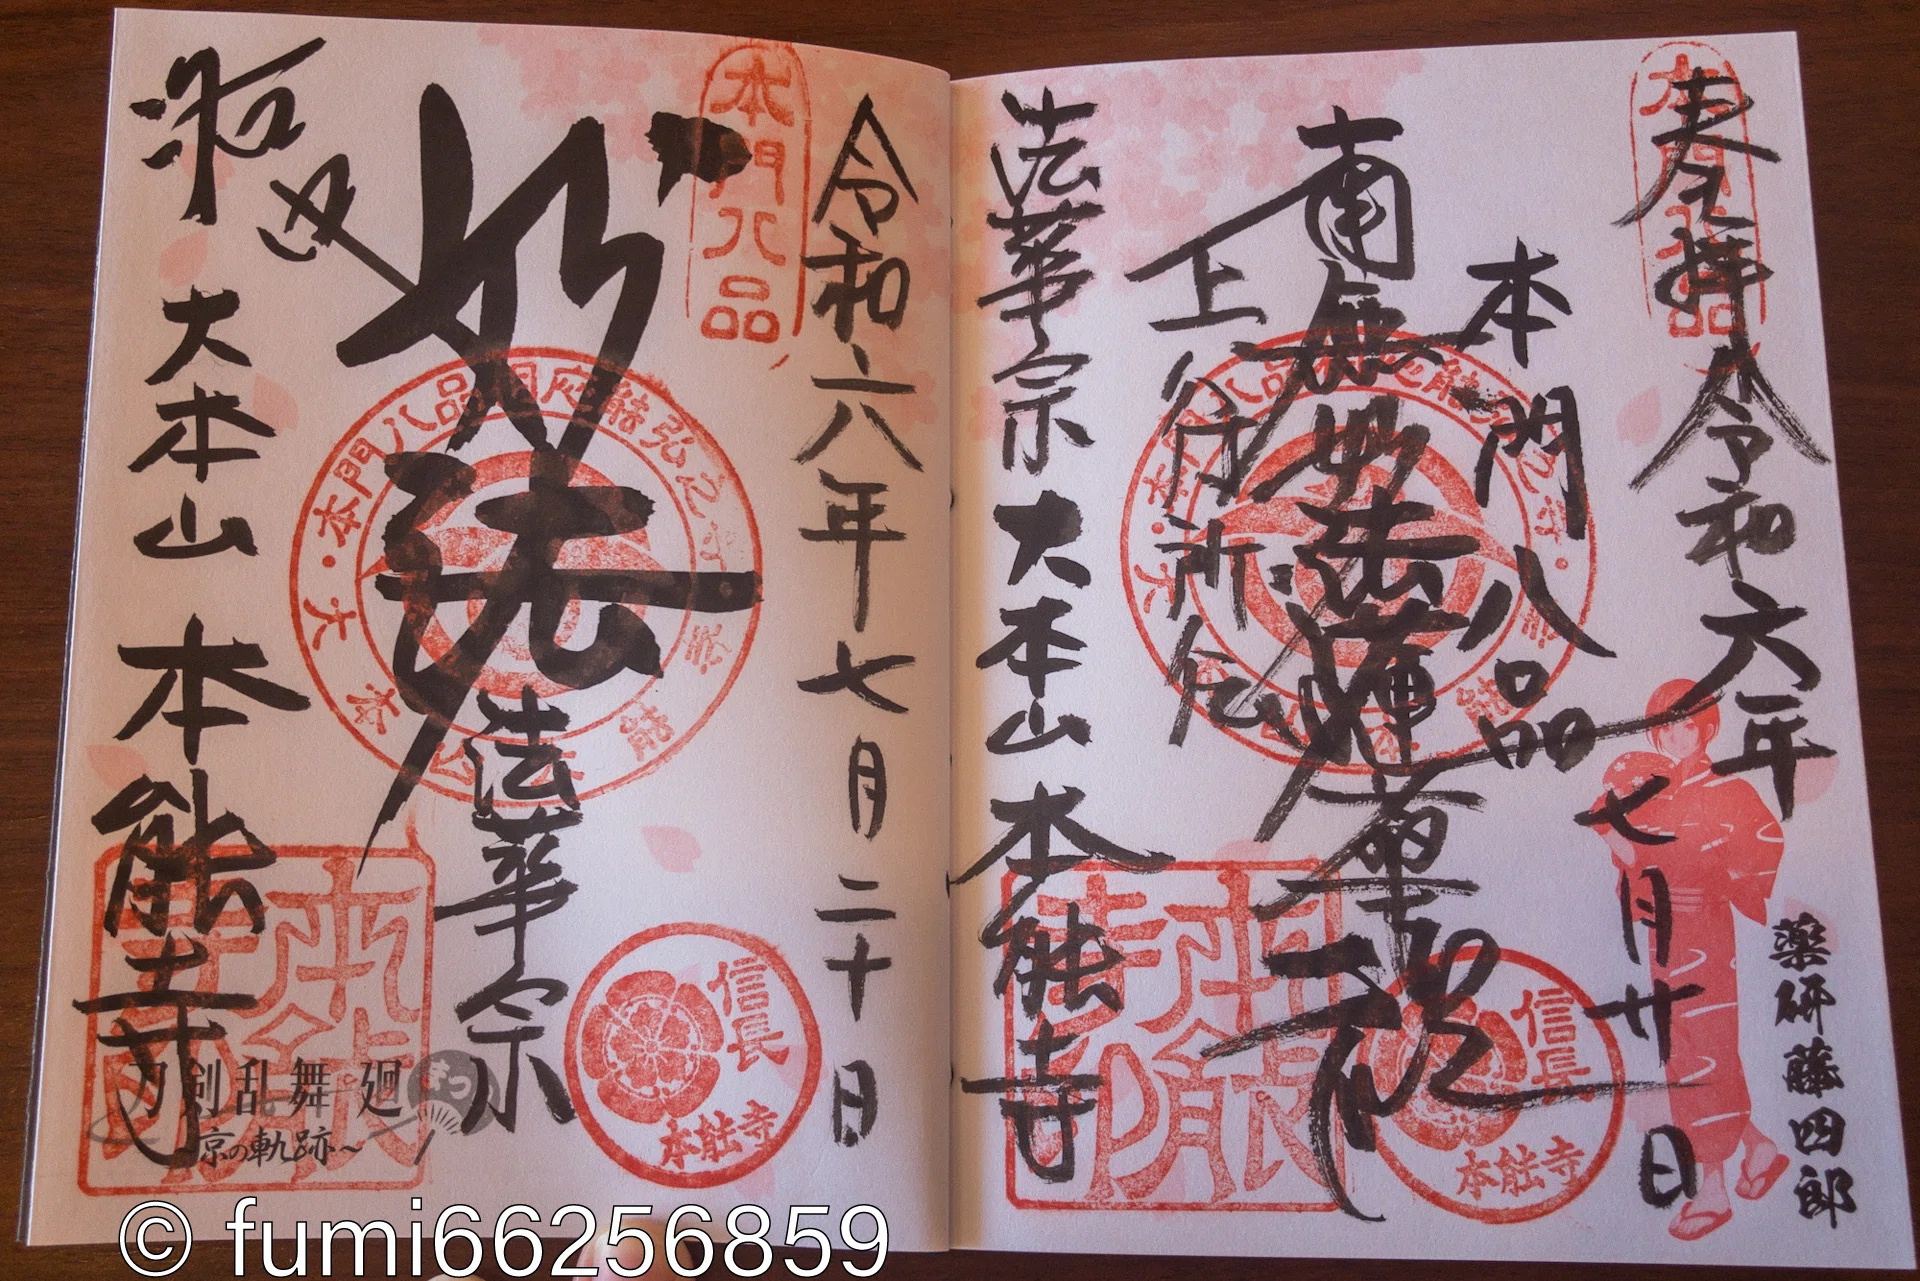 奉拝 令和六年
七月廿日
薬研藤四郎
本門八品
南無妙法蓮華経
上行所伝
法華宗 大本山 本能寺
信長
本能寺
本能寺
令和六年七月二十日
本門八品
妙法
法華宗
大本山 本能寺
信長
本能寺
本能寺
刀剣乱舞 廻
京の軌跡～
© fumi66256859